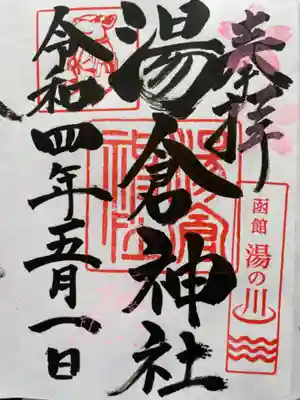 奉拝
函館 湯の川
湯倉神社
湯倉神社
令和四年五月一日